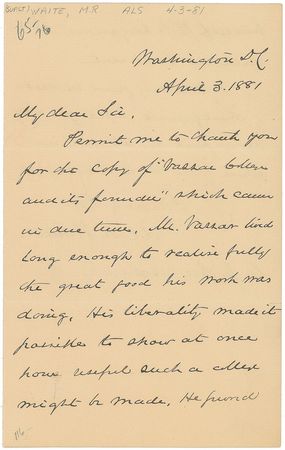 WAITE, M.R. ALS 4-3-81
Washington D.C.
April 3. 1881
My dear Sir,
Permit me to thank you
for the copy of "Vassar College
and its founder" which came
in due time. Mr. Vassar lived
long enough to realize fully
the great good his work was
doing. His liberality made it
possible to show at once
how useful such a college
might be made. He found